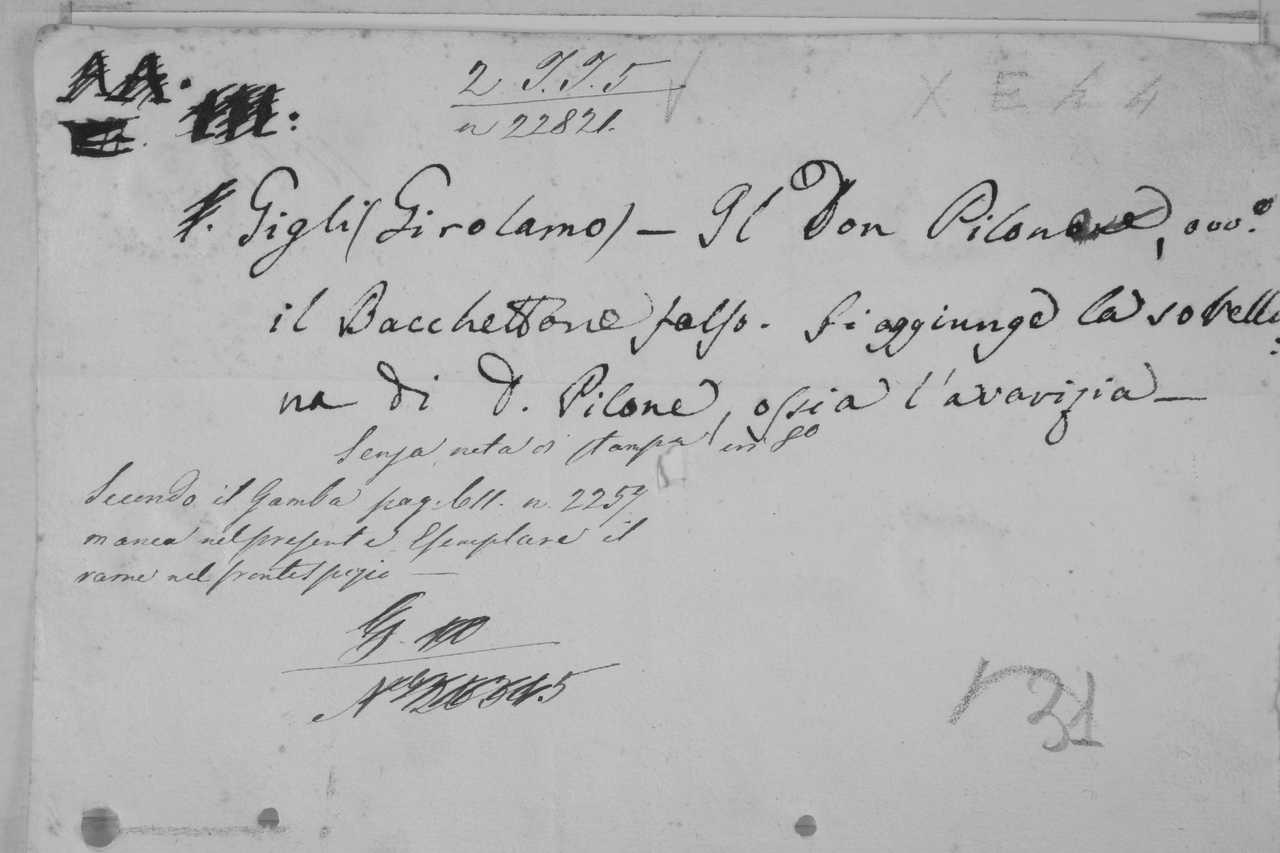 AA.
III.
2. J.J. 5
n 22821.
X E 4 4
Gigli (Girolamo) — Il Don Pilone, ovv.o
il Bacchettone falso. Si aggiunge la sorelli
na di D. Pilone, ossia l'avarizia —
Senza nota di stampa in 8o
Secondo il Gamba pag. 611. n. 2257
manca nel presente Esemplare il
rame nel frontespizio —
31